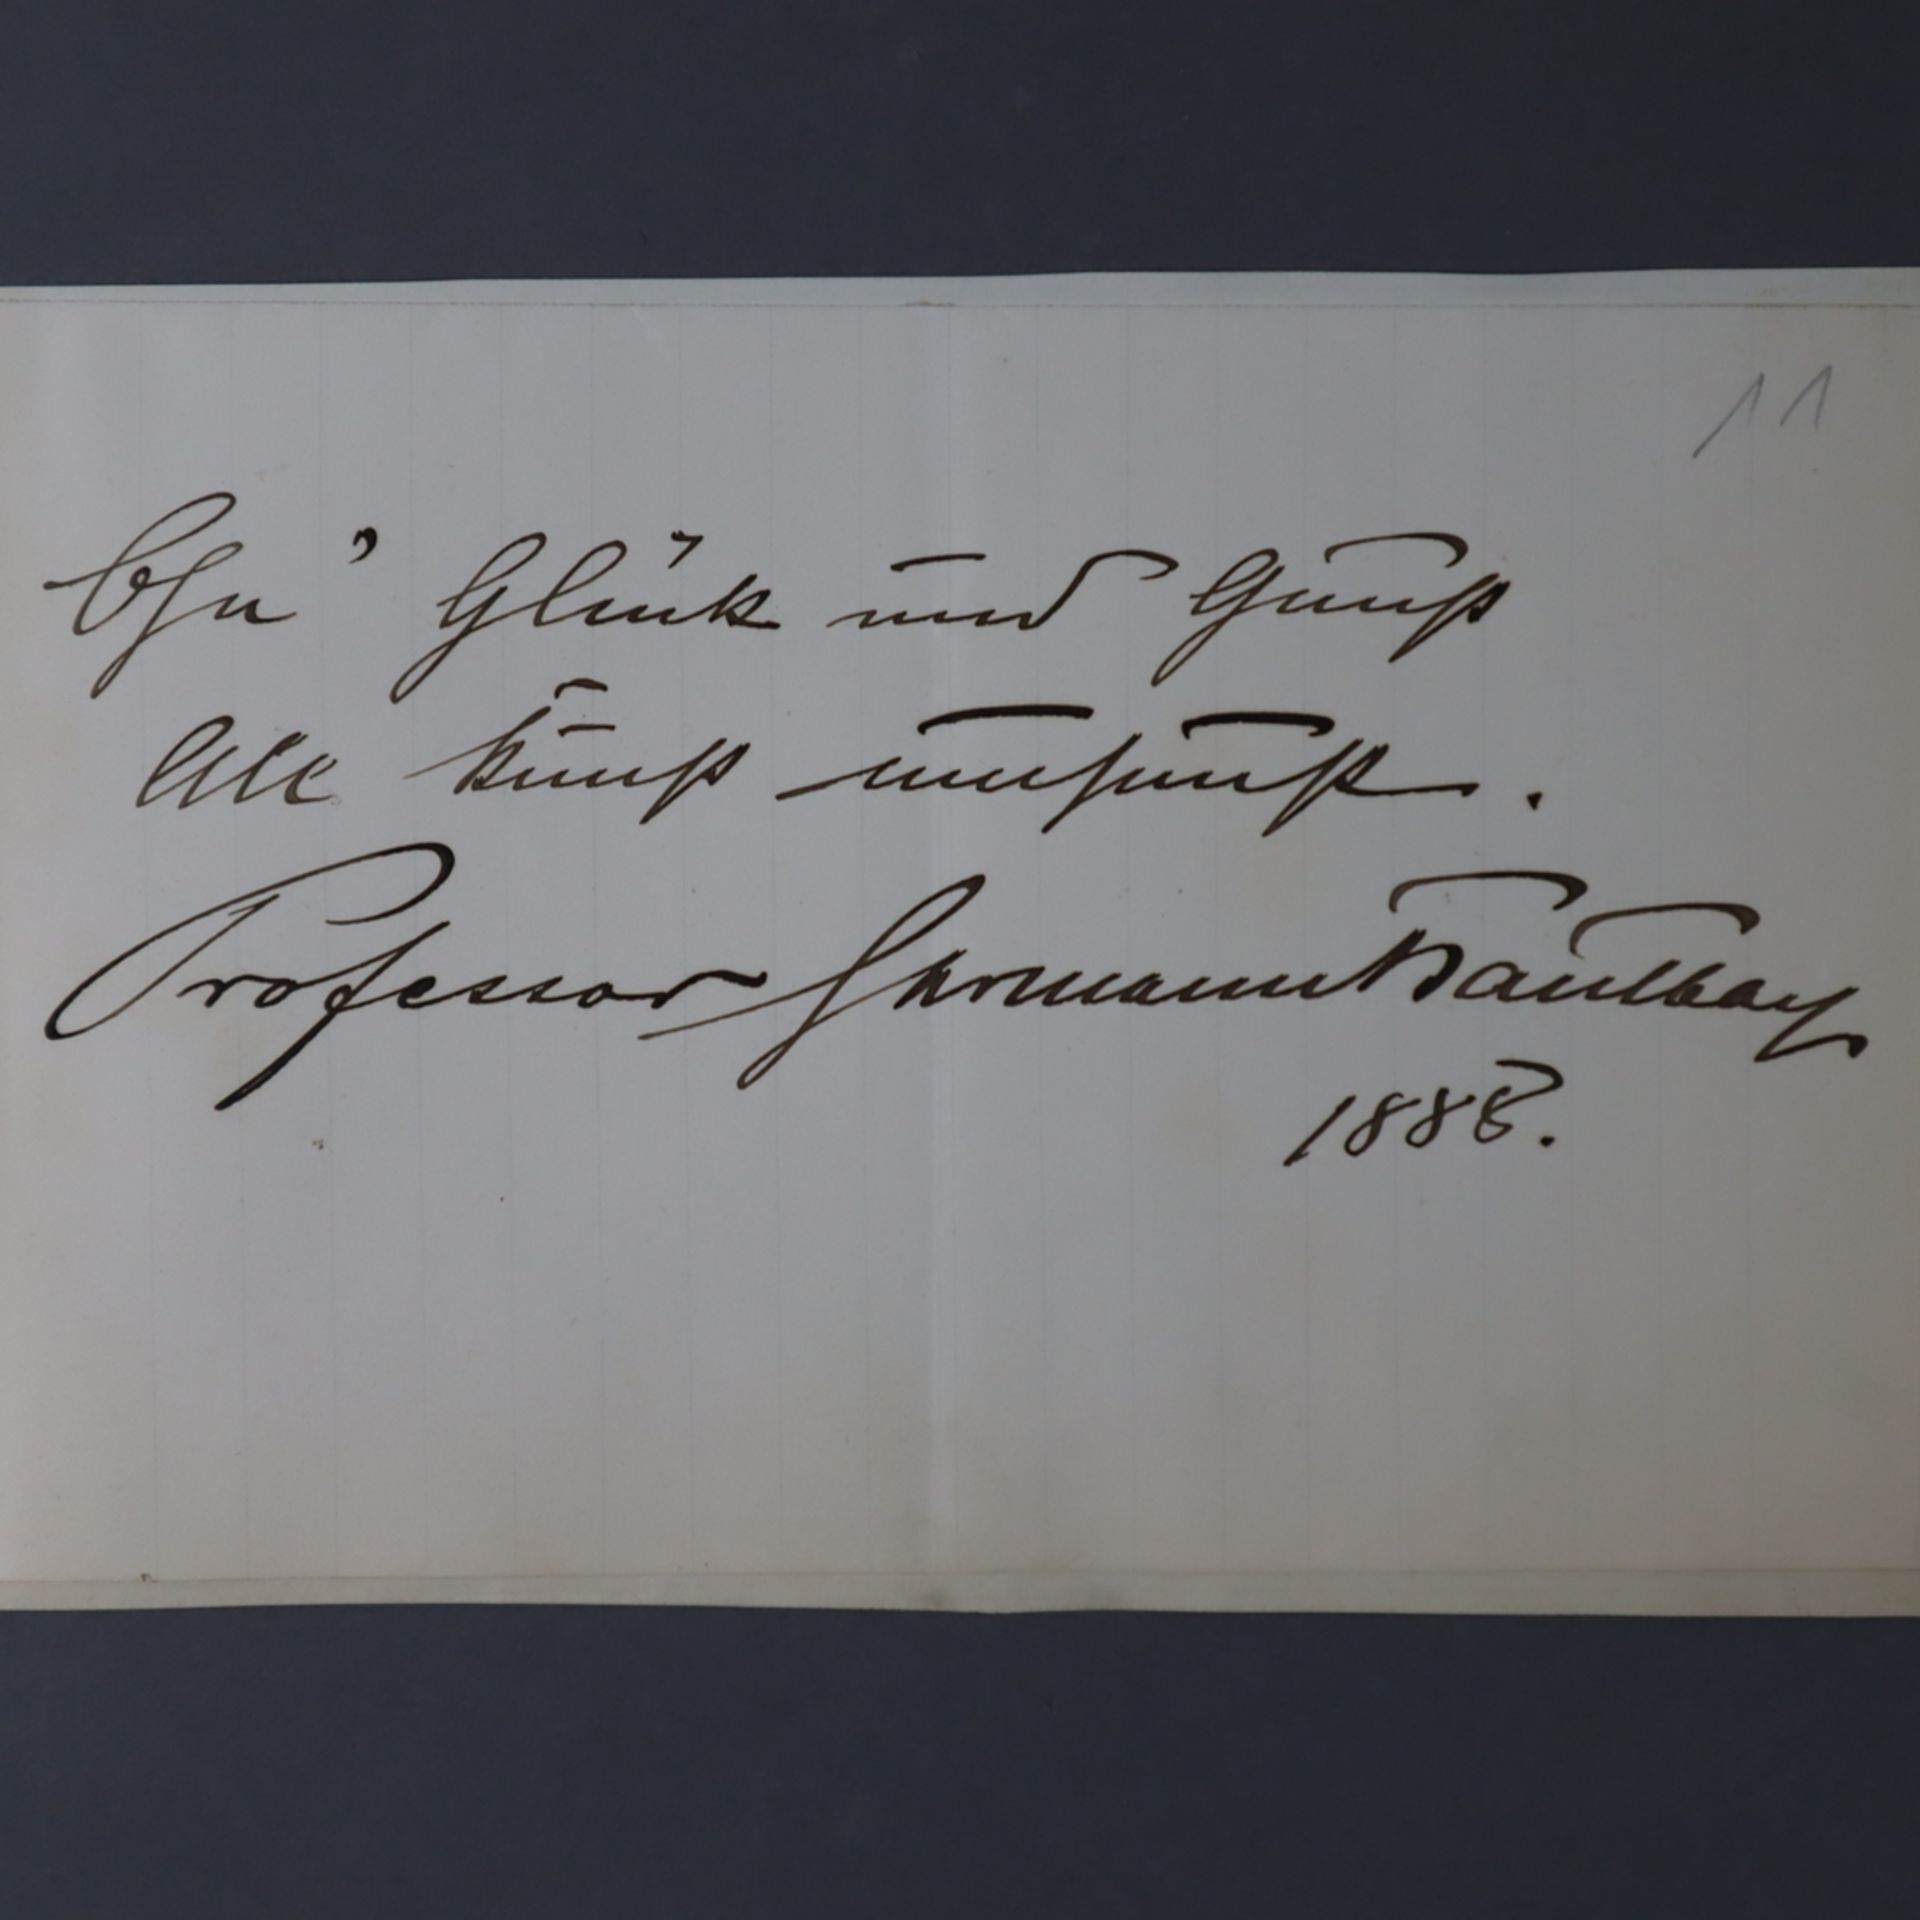 11
Ohn' Glück und Gunst
All Kunst umsunst.
Professor Hermann Kaulbach
1888.